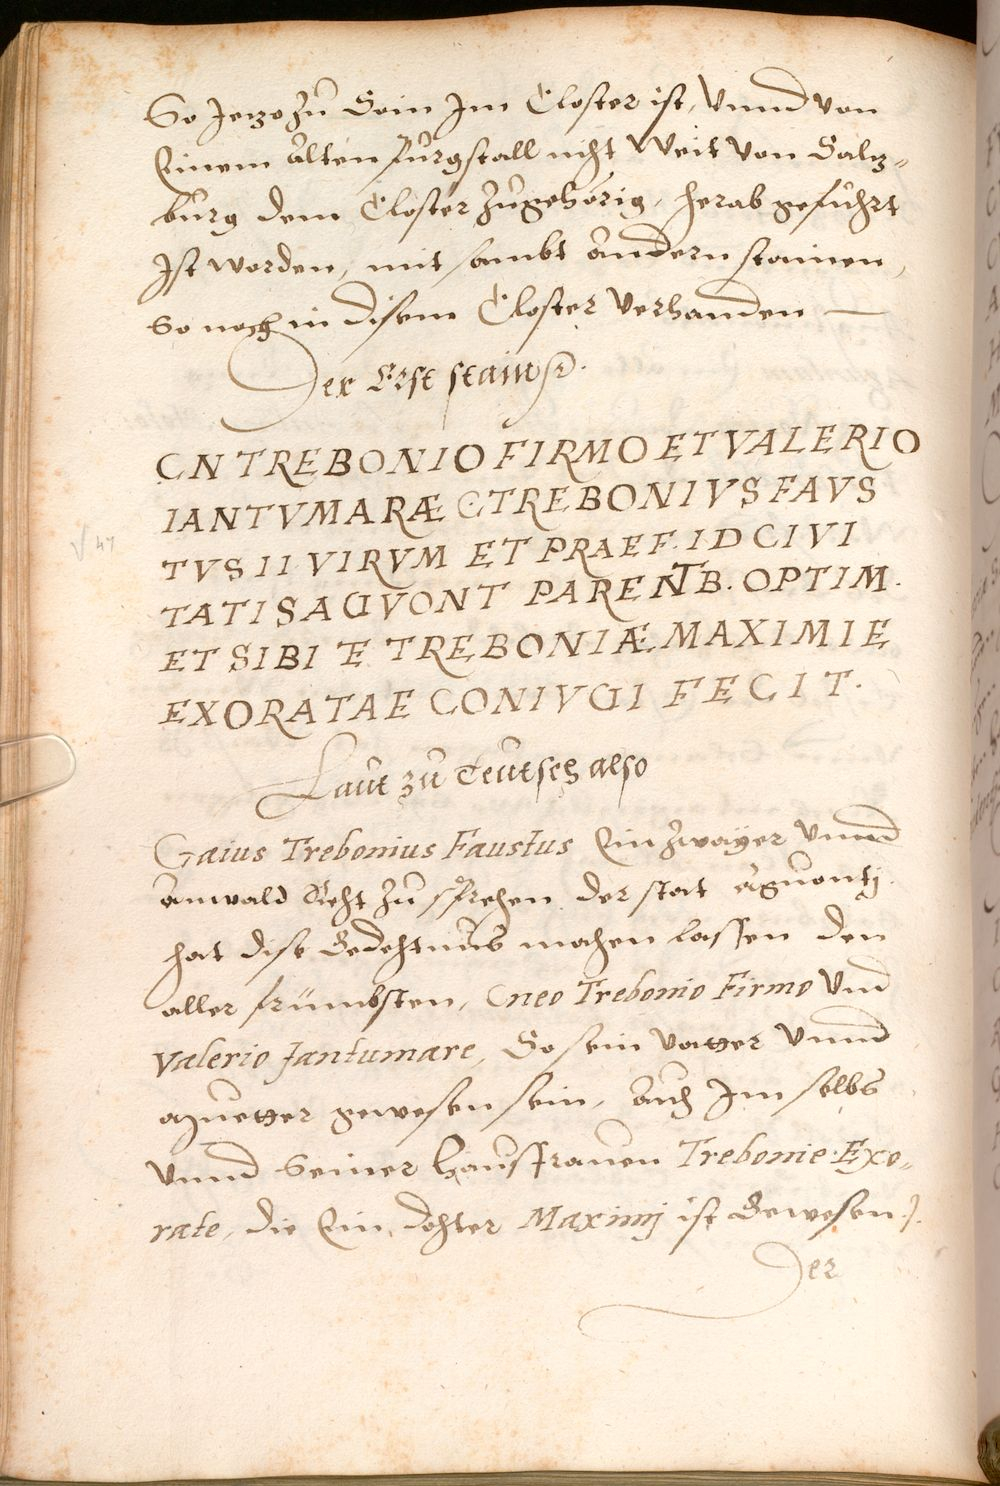 So Jezo zu Soin Jm Closter ist, Vnnd von
Einem Alten purgstall nicht Weit von Salz-
burg dem Closter zugehörig, herab gefuhrt
Jst worden, mit sambt andern stainen,
So noch in disem Closter verhanden —
Der Erst stain
CN TREBONIO FIRMO ET VALERIO
IANTVMARÆ C TREBONIVS FAVS
TVS II VIRVM ET PRAEF. ID CIVI
TATIS AGVONT PARENTB. OPTIM.
ET SIBI TE TREBONIÆ MAXIMIE
EXORATAE CONIVGI FECIT.
Laut zu Teutsch also
Gaius Trebonius Faustus Ein zwayer vnnd
anwald Reht zu sprehen der stat aguontj.
hat dise Gedehtnus mahen lassen den
aller frümbsten, Cneo Trebonio Firmo vnd
Valerio Jantumare, So sein vatter vnnd
muetter gewesen sein, Auch Jm selbs
vnnd seiner Hausfrauen Trebonie Exo-
rate, die Ein dohter Maximj ist Gewesen
Der
V 47